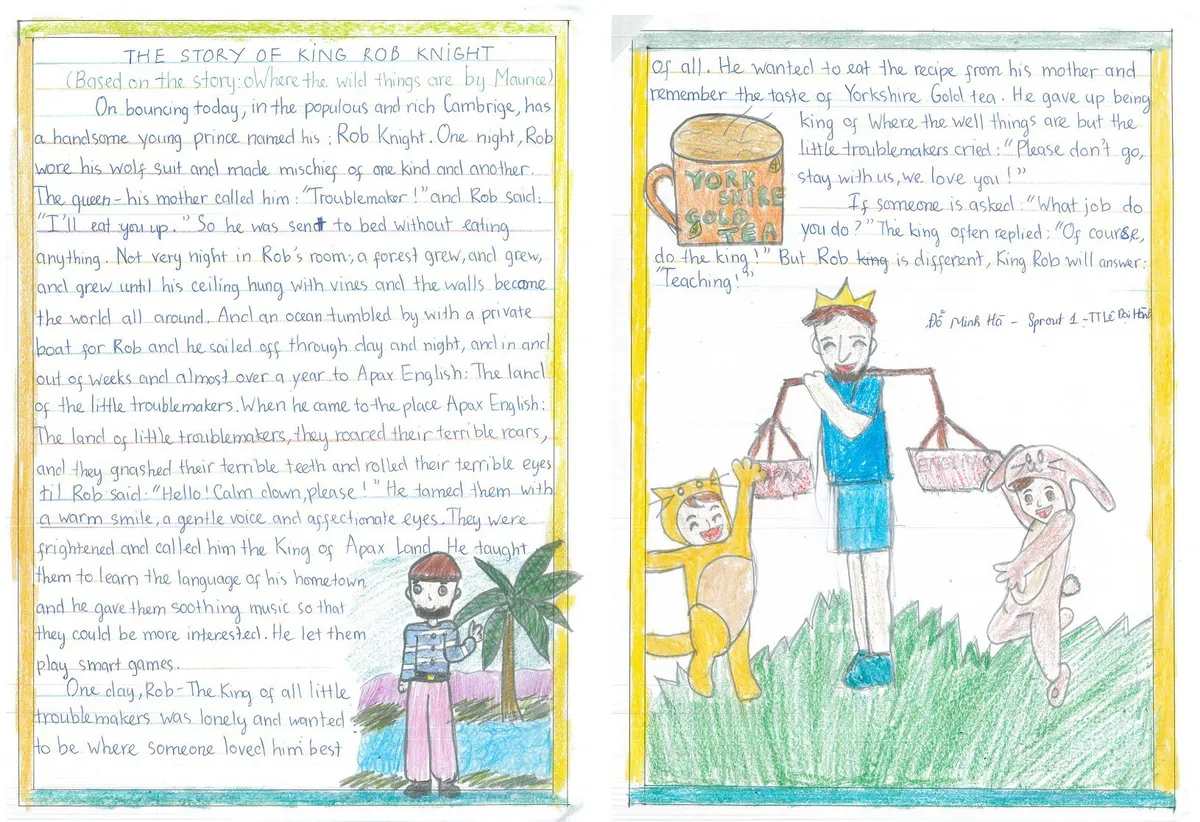 THE STORY OF KING ROB KNIGHT
(Based on the story: Where the wild things are by Maurice)
On bouncing today, in the populous and rich Cambrige, has
a handsome young prince named his : Rob Knight. One night, Rob
wore his wolf suit and made mischief of one kind and another.
The queen - his mother called him : "Troublemaker !" and Rob said:
"I'll eat you up." So he was sent to bed without eating
anything. Not very night in Rob's room, a forest grew, and grew,
and grew until his ceiling hung with vines and the walls become
the world all around. And an ocean tumbled by with a private
boat for Rob and he sailed off through day and night, and in and
out of weeks and almost over a year to Apax English: The land
of the little troublemakers. When he came to the place Apax English:
The land of little troublemakers, they roared their terrible roars,
and they gnashed their terrible teeth and rolled their terrible eyes
til Rob said: "Hello! Calm down, please!" He tamed them with
a warm smile, a gentle voice and affectionate eyes. They were
frightened and called him the King of Apax land. He taught
them to learn the language of his hometown
and he gave them soothing music so that
they could be more interested. He let them
play smart games.
One day, Rob - The King of all little
troublemakers was lonely and wanted
to be where someone loved him best
of all. He wanted to eat the recipe from his mother and
remember the taste of Yorkshire Gold tea. He gave up being
king of Where the well things are but the
little troublemakers cried: "Please don't go,
stay with us, we love you!"
If someone is asked: "What job do
you do?" The king often replied: "Of course,
do the king!" But Rob king is different, King Rob will answer:
"Teaching!"
YORK
SHIRE
GOLD
TEA
Đỗ Minh Hà - Sprout 1 - TT Lê Đại Hành
ENGLISH